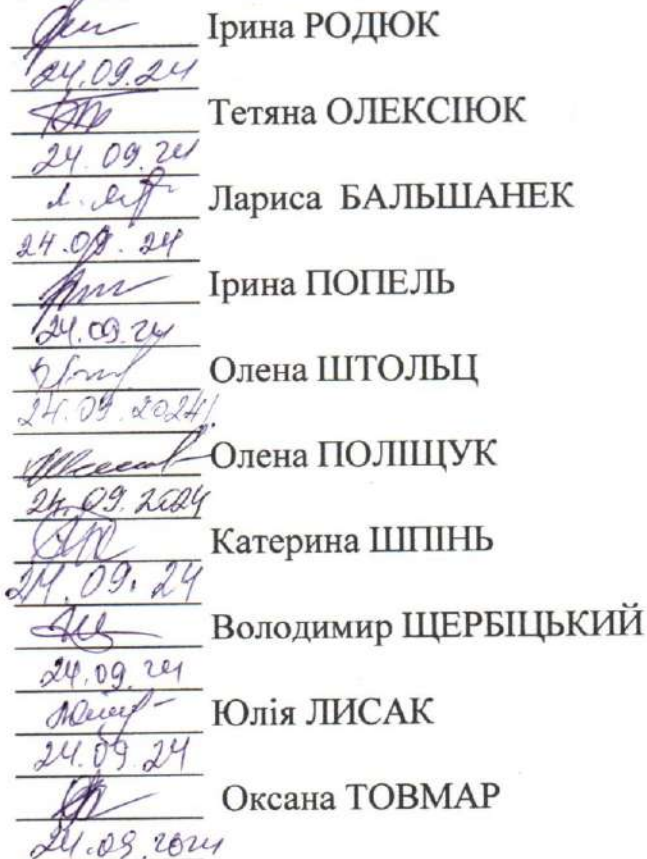 Ірина РОДЮК
24.09.24
Тетяна ОЛЕКСІЮК
24.09.24
Лариса БАЛЬШАНЕК
24.09.24
Ірина ПОПЕЛЬ
24.09.24
Олена ШТОЛЬЦ
24.09.2024
Олена ПОЛІЩУК
24.09.2024
Катерина ШПІНЬ
24.09.24
Володимир ЩЕРБІЦЬКИЙ
24.09.24
Юлія ЛИСАК
24.09.24
Оксана ТОВМАР
24.09.2024